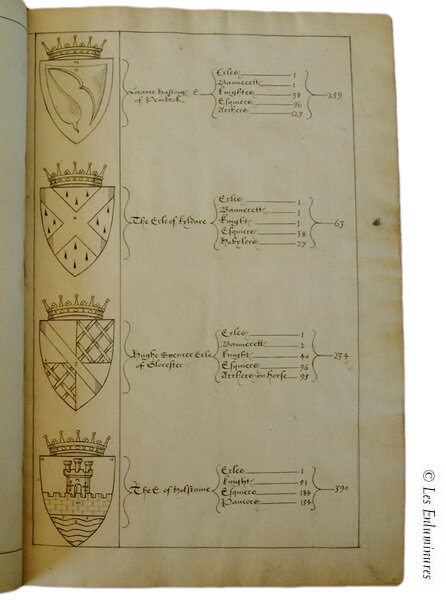 Loranc Hastings E
of Pembrok
Erles 1
Bannerett 1
Knightes 38
Esquiers 96
Archers 127
259
The Erle of Kyldare
Erles 1
Bannerett 1
Knight 1
Esquiers 38
Hobylers 27
63
Hughe Spencer Erle
of Glocester
Erles 1
Bannerett 2
Knight 40
Esquiers 96
Archers on horse 95
234
The E of Holstame
Erles 1
Knight 51
Esquiers 184
Pancors 154
390
© Les Enluminures